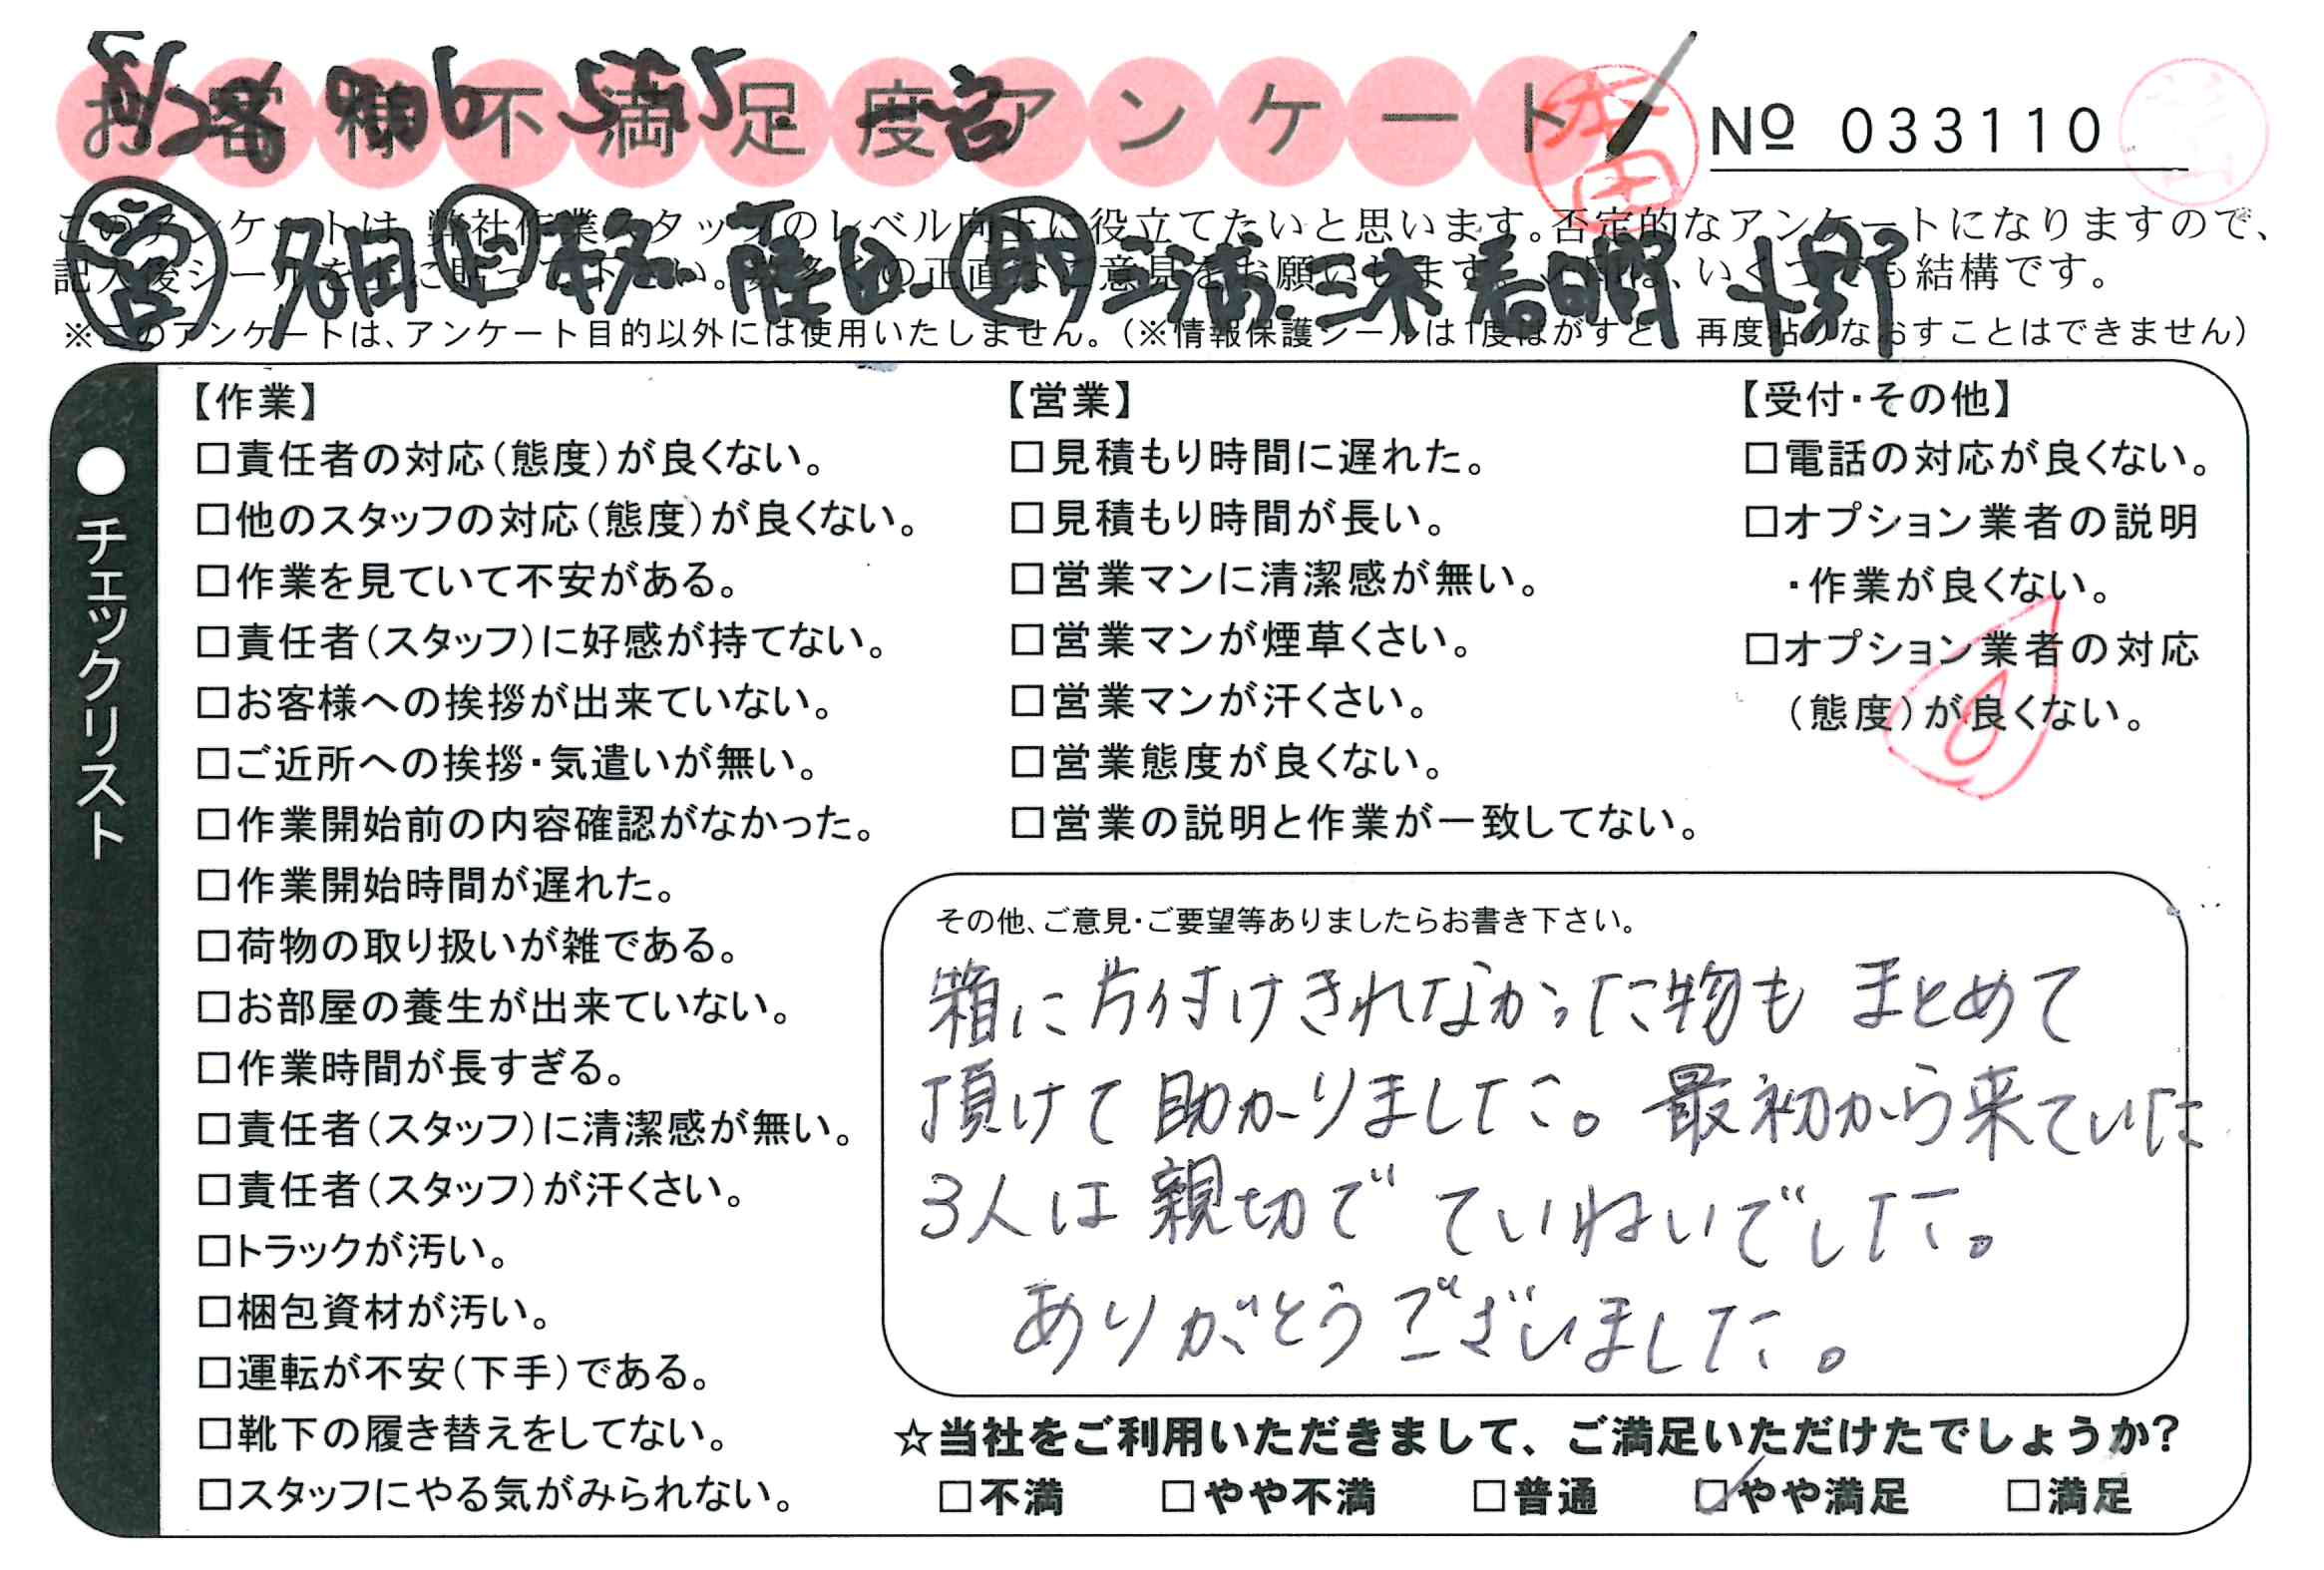 お客様不満足度アンケート
本田
№ 033110
このアンケートは、弊社作業スタッフのレベル向上に役立てたいと思います。否定的なアンケートになりますので、
記入後シールを上に貼って下さい。数多くの正直なご意見をお願いします。
いくつでも結構です。
※このアンケートは、アンケート目的以外には使用いたしません。（※情報保護シールは1度はがすと、再度貼りなおすことはできません）
営 助 三浦 三木 春明
●チェックリスト
【作業】
□責任者の対応（態度）が良くない。
□他のスタッフの対応（態度）が良くない。
□作業を見ていて不安がある。
□責任者（スタッフ）に好感が持てない。
□お客様への挨拶が出来ていない。
□ご近所への挨拶・気遣いが無い。
□作業開始前の内容確認がなかった。
□作業開始時間が遅れた。
□荷物の取り扱いが雑である。
□お部屋の養生が出来ていない。
□作業時間が長すぎる。
□責任者（スタッフ）に清潔感が無い。
□責任者（スタッフ）が汗くさい。
□トラックが汚い。
□梱包資材が汚い。
□運転が不安（下手）である。
□靴下の履き替えをしてない。
□スタッフにやる気がみられない。
【営業】
□見積もり時間に遅れた。
□見積もり時間が長い。
□営業マンに清潔感が無い。
□営業マンが煙草くさい。
□営業マンが汗くさい。
□営業態度が良くない。
□営業の説明と作業が一致してない。
【受付・その他】
□電話の対応が良くない。
□オプション業者の説明
・作業が良くない。
□オプション業者の対応
（態度）が良くない。
その他、ご意見・ご要望等ありましたらお書き下さい。
箱に片付けきれなかった物も まとめて
頂けて助かりました。最初から来ていた
3人は親切で ていねいでした。
ありがとうございました。
☆当社をご利用いただきまして、ご満足いただけたでしょうか?
□不満 □やや不満 □普通 ☑やや満足 □満足